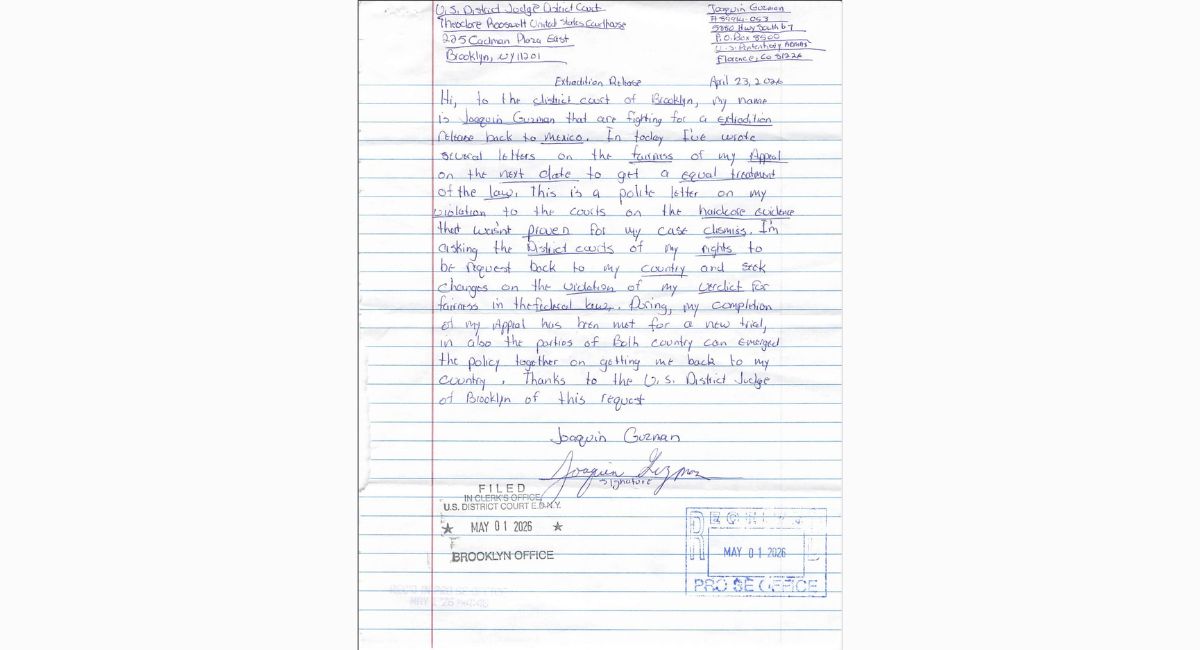 U.S. District Judge District Court
Theodore Roosevelt United States Courthouse
225 Cadman Plaza East
Brooklyn, NY 11201
Joaquin Guzman
5880 Hwy South 67
P.O. Box 8500
U.S. Penitentiary
Florence, Co
Extradition Release
April 23, 2026
Hi, to the district court of Brooklyn, my name
is Joaquin Guzman that are fighting for a extradition
release back to mexico. In today I've wrote
several letters on the fairness of my Appeal
on the next date to get a equal treatment
of the law. This is a polite letter on my
violation to the courts on the hardcore evidence
that wasn't proven for my case dismiss. I'm
asking the District courts of my rights to
be request back to my country and seek
changes on the violation of my verdict for
fairness in the federal law. During, my completion
of my Appeal has been met for a new trial,
in also the parties of Both country can emerged
the policy together on getting me back to my
country. Thanks to the U.S. District Judge
of Brooklyn of this request
Joaquin Guzman
Signature
FILED
IN CLERK'S OFFICE
U.S. DISTRICT COURT E.D.N.Y.
★ MAY 01 2026 ★
BROOKLYN OFFICE
MAY 01 2026
PRO SE OFFICE